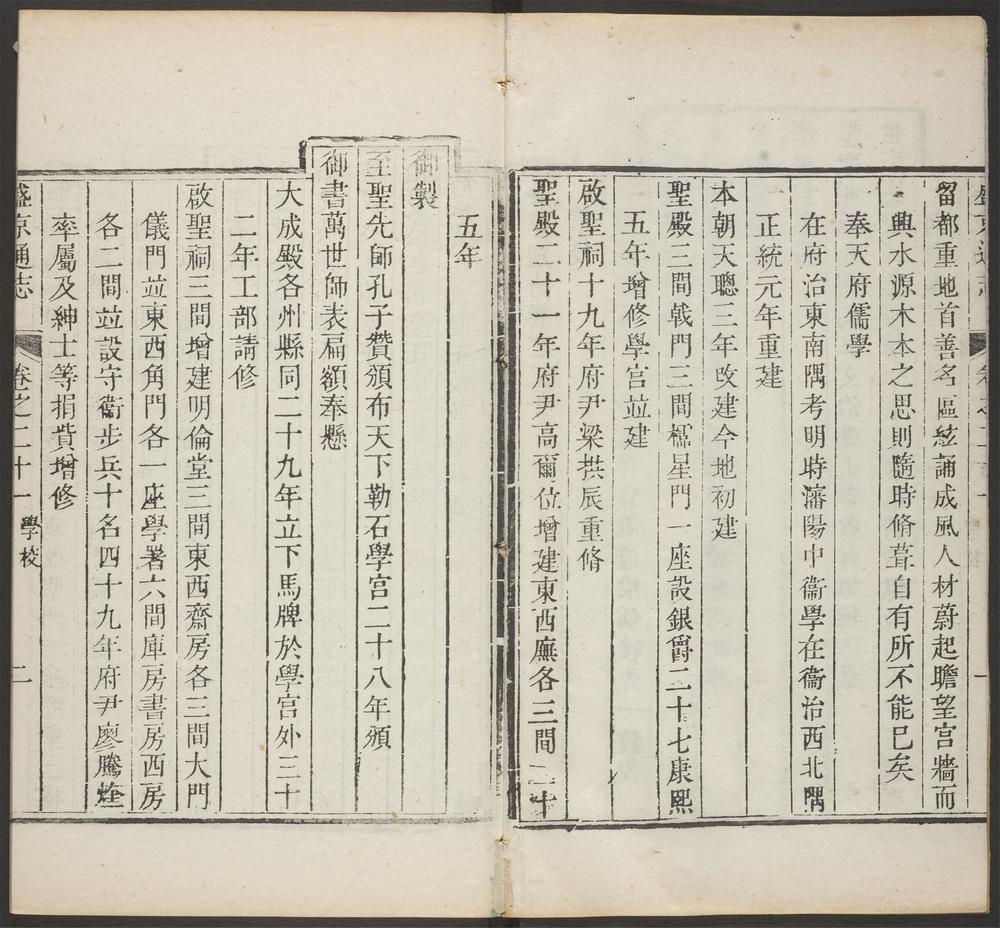 留都重地首善名區絃誦成風人材蔚起瞻望宮牆而
興水源木本之思則隨時脩葺自有所不能已矣
奉天府儒學
在府治東南隅考明時瀋陽中衞學在衞治西北隅
正統元年重建
本朝天聰三年改建今地初建
聖殿三間戟門三間櫺星門一座設銀爵二十七康熙
五年增修學宮並建
啟聖祠十九年府尹梁拱辰重脩
聖殿二十一年府尹高爾位增建東西廡各三間二十
五年
御製
至聖先師孔子贊頒布天下勒石學宮二十八年頒
御書萬世師表扁額奉懸
大成殿各州縣同二十九年立下馬牌於學宮外三十
二年工部請修
啟聖祠三間增建明倫堂三間東西齋房各三間大門
儀門並東西角門各一座學署六間庫房書房西房
各二間並設守衞步兵十名四十九年府尹廖騰煃
率屬及紳士等捐貲增修
盛京通志 卷之二十一 學校 二